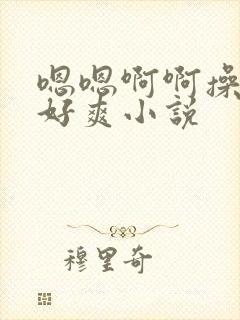 嗯嗯啊啊操
好爽小说
穆里奇